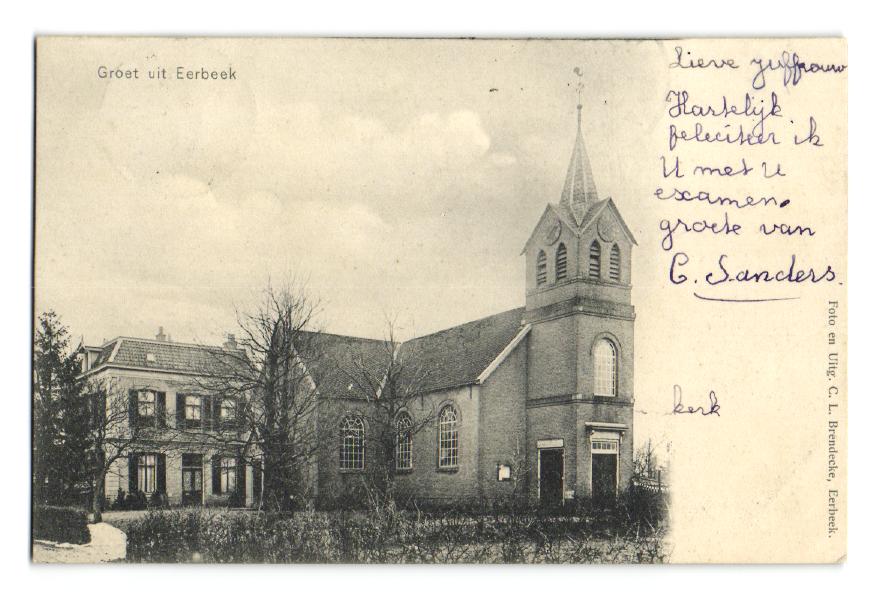 Groet uit Eerbeek
Lieve juffrouw
Hartelijk
feleciteer ik
U met U
examen.
groete van
C. Sanders.
kerk
Foto en Uitg. C. L. Brendecke, Eerbeek.